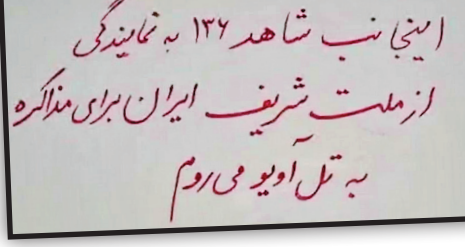 اینجانب شاهد ۱۳۶ به نمایندگی
از ملت شریف ایران برای مذاکره
به تل آویو می روم